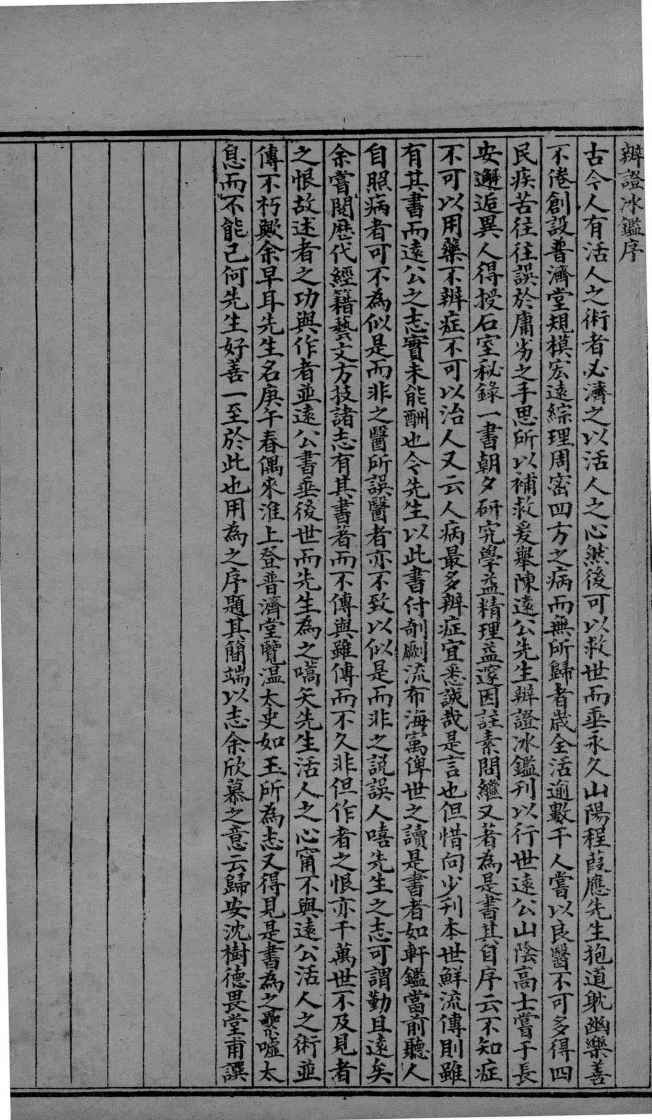 辨證冰鑑序
古今人有活人之術者必濟之以活人之心然後可以救世而垂永久山陽程葭應先生抱道躭幽樂善
不倦創設普濟堂規模宏遠綜理周密四方之病而無所歸者歲全活逾數千人嘗以良醫不可多得四
民疾苦往往誤於庸劣之手思所以補救爰舉陳遠公先生辨證冰鑑刊以行世遠公山陰高士嘗于長
安邂逅異人得授石室秘錄一書朝夕研究學益精理益邃因註素問繼又著為是書其自序云不知症
不可以用藥不辨症不可以治人又云人病最多辨症宜悉誠哉是言也但惜向少刊本世鮮流傳則雖
有其書而遠公之志實未能酬也今先生以此書付剞劂流布海寓俾世之讀是書者如軒鑑當前聽人
自照病者可不為似是而非之醫所誤醫者亦不致以似是而非之說誤人嘻先生之志可謂勤且遠矣
余嘗閱歷代經籍藝文方技諸志有其書著而不傳與雖傳而不久非但作者之恨亦千萬世不及見者
之恨故述者之功與作者並遠公書垂後世而先生為之嚆矢先生活人之心甯不與遠公活人之術並
傳不朽歟余早耳先生名庚午春偶來淮上登普濟堂覽温太史如玉所為志又得見是書為之纍噓太
息而不能已何先生好善一至於此也用為之序題其簡端以志余欣慕之意云歸安沈樹德畏堂甫譔